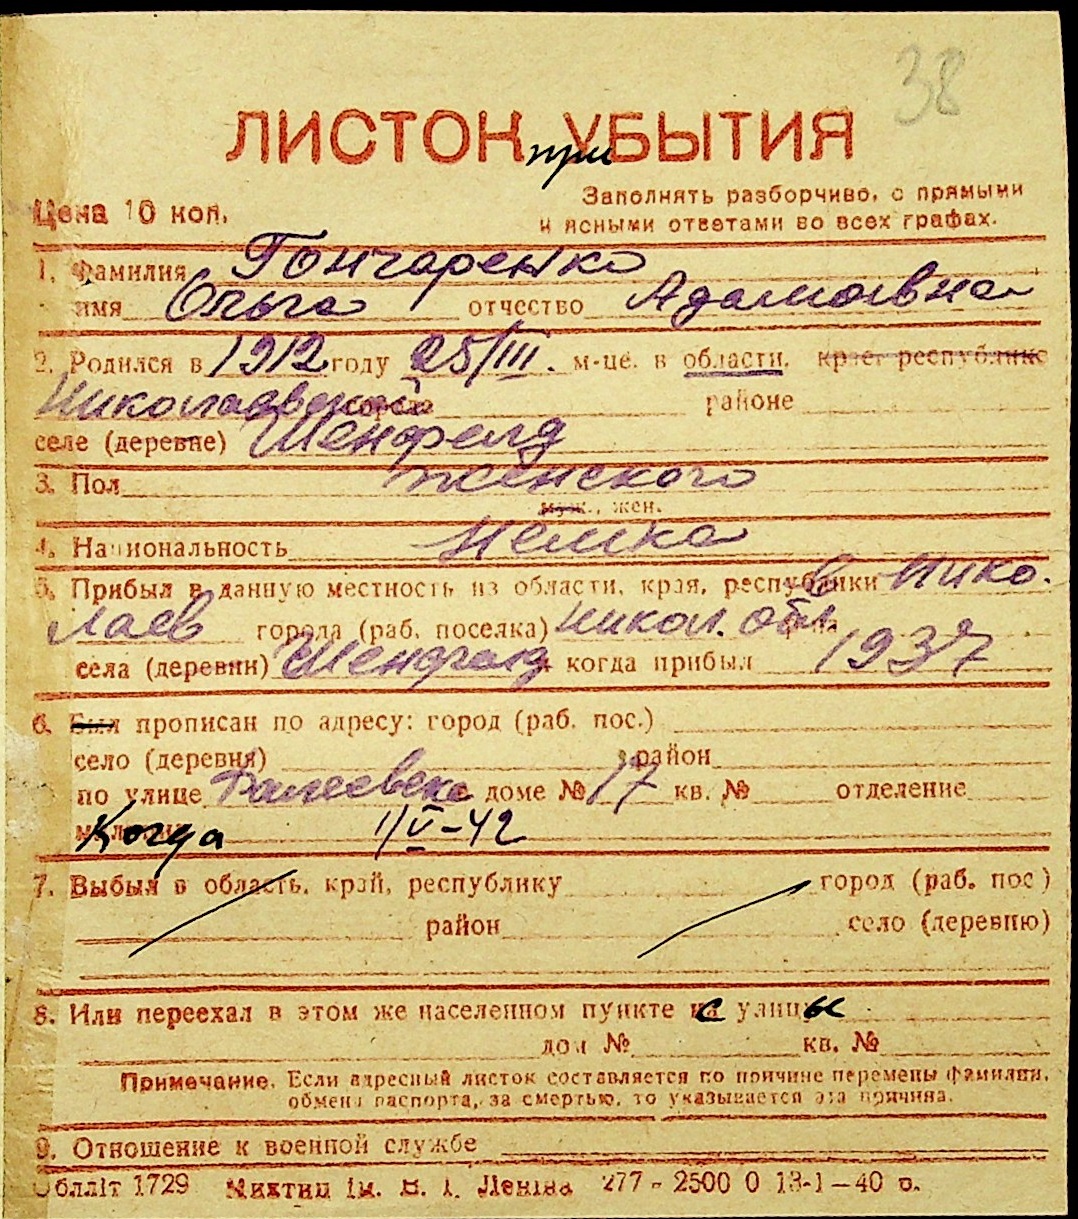 38
ЛИСТОК при УБЫТИЯ
Цена 10 коп.
Заполнять разборчиво, с прямыми
и ясными ответами во всех графах.
1. Фамилия Гончаренко
имя Ольга отчество Адамовна
2. Родился в 1912 году 25/III. м-це. в области, крае, республике
Николаевской города районе
селе (деревне) Шенфелд
3. Пол женского
муж., жен.
4. Национальность немка
5. Прибыл в данную местность из области, края, республики в Нико-
лаев города (раб. поселка) Никол. обл.
села (деревни) Шенфелд когда прибыл 1937
6. Был прописан по адресу: город (раб. пос.)
село (деревня) район
по улице доме № 17 кв. № отделение
Когда 1/V-42
7. Выбыл в область, край, республику город (раб. пос)
район село (деревню)
8. Или переехал в этом же населенном пункте с улицы
дом № кв. №
Примечание. Если адресный листок составляется по причине перемены фамилии,
обмена паспорта, за смертью, то указывается эта причина.
9. Отношение к военной службе
Обллiт 1729 iм. В. I. Ленiна 277 - 2500 0 13-1-40 р.